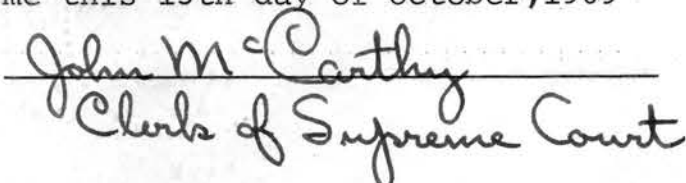 me this day of October,
John McCarthy
Clerk of Supreme Court